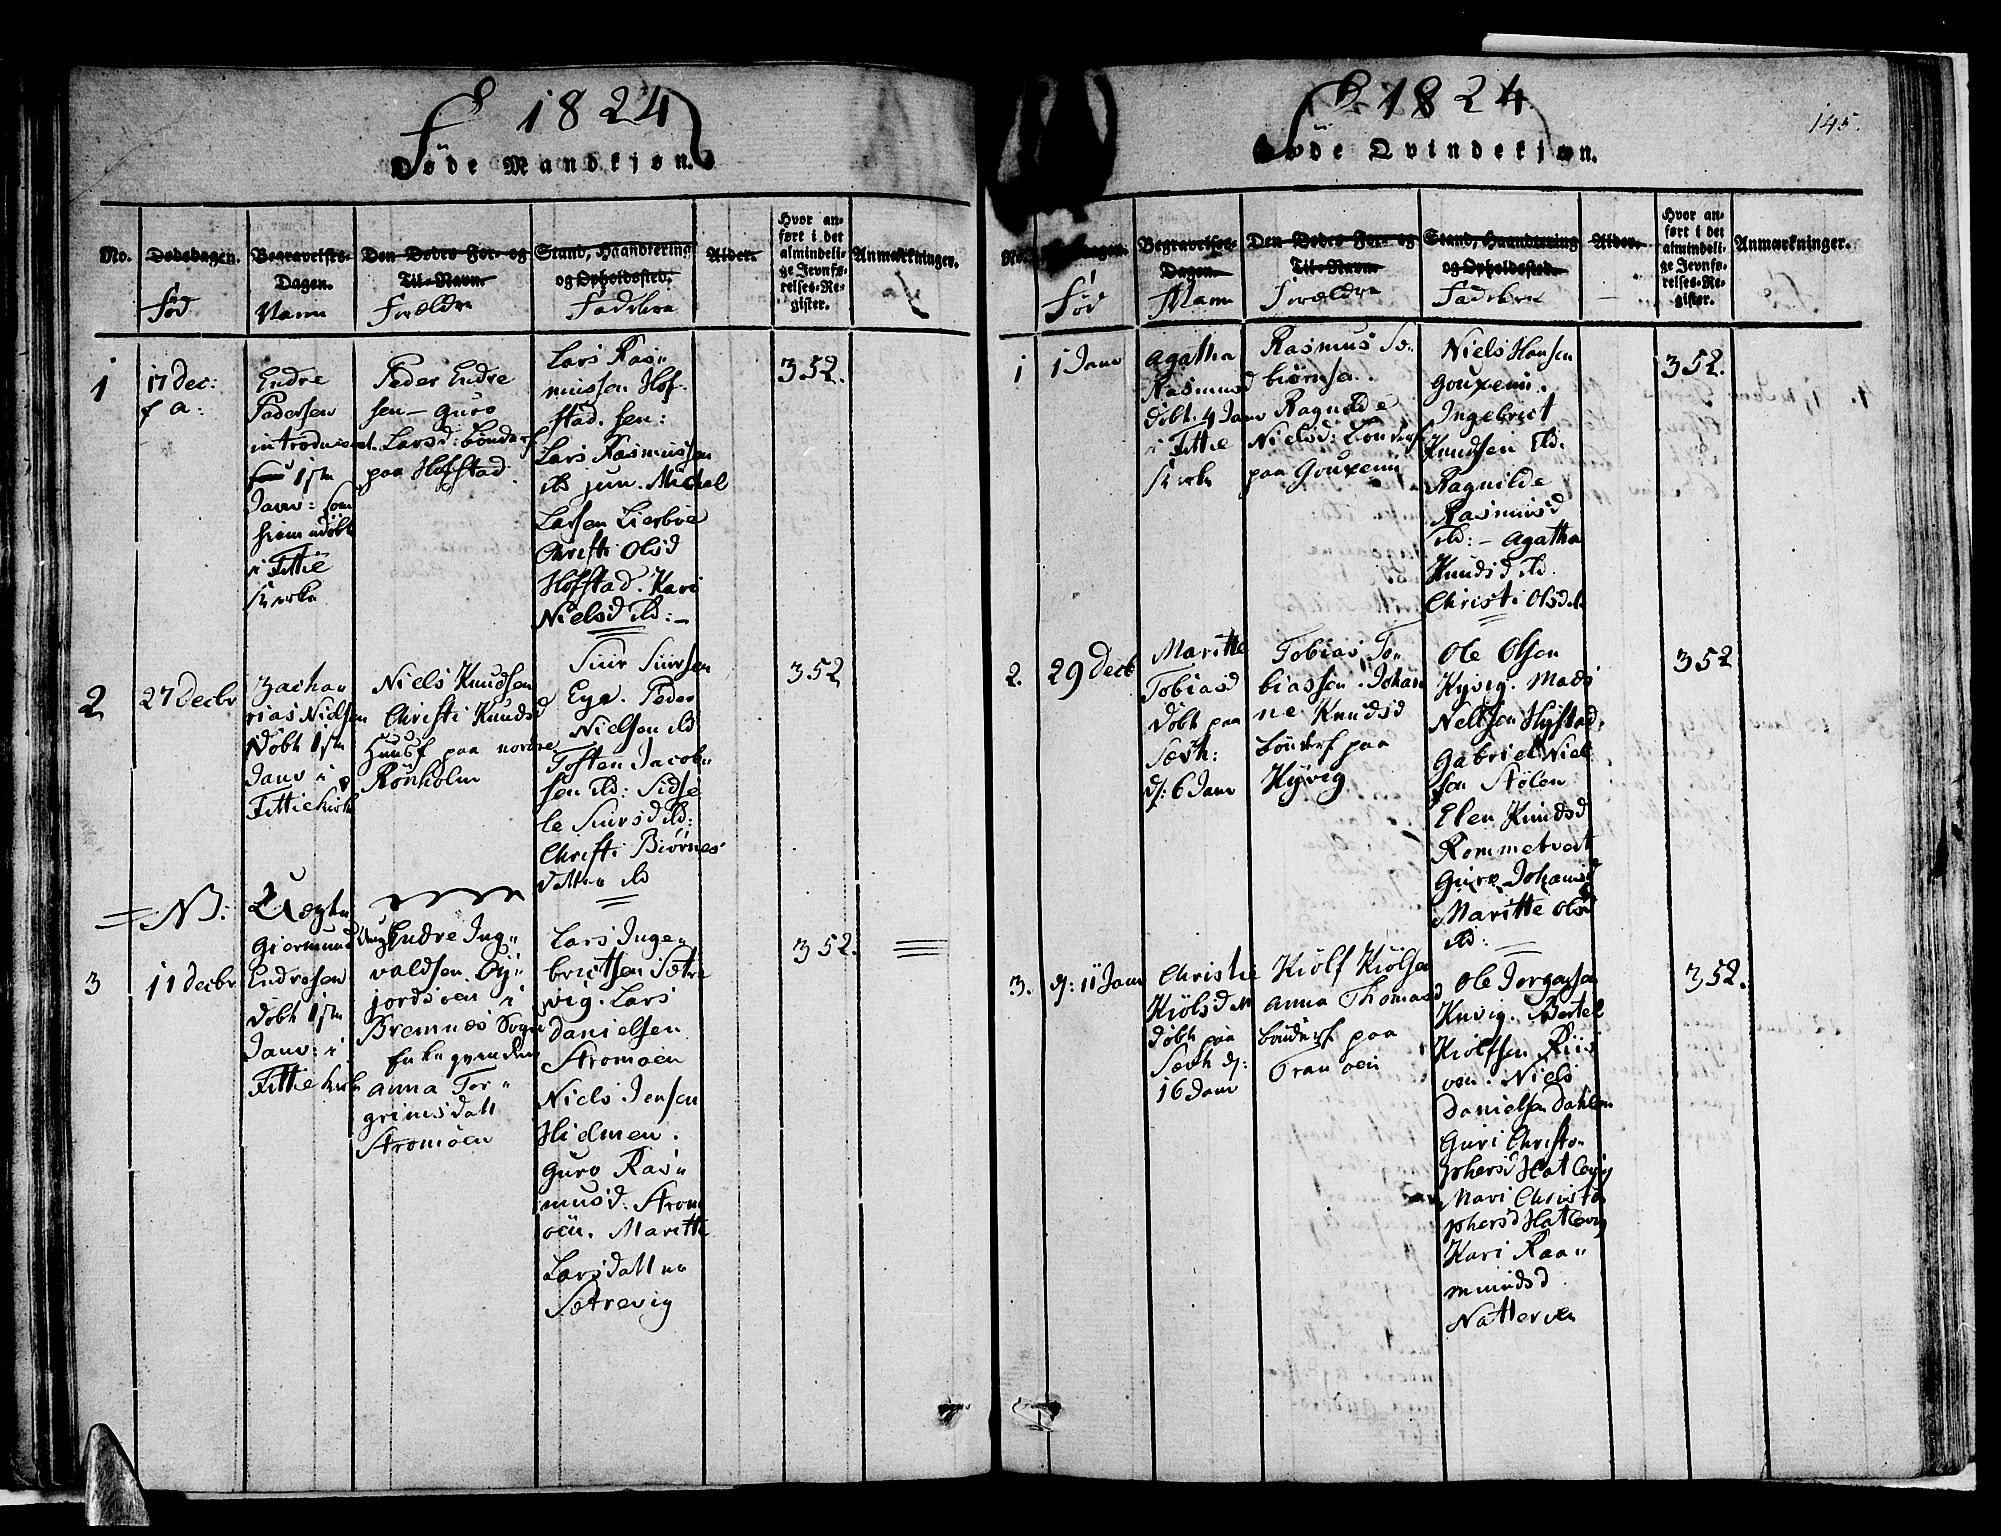 1824
Føde Mandkjøn.
No.
Dødsdagen.
Fød
Begravelses-
Dagen.
Navn
Den Dødes For- og
Til-Navn.
Forældre
Stand, Haandtering
og Opholdssted.
Faddere
Alder.
Hvor an-
ført i det
almindeli-
ge Jevnfø-
relses-Re-
gister.
Anmærkninger.
1
17 Dec:
f a:
Endre
Pedersen
introducert
1ste
Janv: som
hiemmdøbt
i Fittie
Kirke
Peder Endre
sen - Guro
Larsd: Bønderf
paa Hofstad
Lars Ras-
mussen Hof-
stad. sen:
Lars Rasmussen
ib jun. Michel
Larsen Lierboe
Christi Olsd
Hofstad. Kari
Nielsd ib: -
352.
2
27 Decbr
Zacha-
rias Nielsen
Døbt 1ste
Janv i
Fittie kirke
Niels Knudsen
Christi Knudsd
Huusf paa nordre
Rønholm
Siur Siursen
Eye. Peder
Nielsen ib
Tosten Jacob-
sen ib: Sidse
le Siursd ib:
Christi Biørnes
datter ib
352
NB:
Uægte
3
11 Decbr
Giermund
Endresen
Døbt 1ste
Janv: i
Fittie kirke
Ungk Endre Ing-
valdsen. Øy-
jordsøen i
Bremnes Sogn
Enke qvinden
Anna Tor-
grimsdatt
Stromøen
Lars Inge-
brictsen Sætre
vig. Lars
Danielsen
Stromøen
Niels Jensen
Hielmen.
Guro Ras-
musd. Strom
øen. Maritte
Larsdatter
Sætrevig
352.
1824
145.
Føde Qvindekjøn.
No.
Fød
Begravelses-
Dagen.
Navn
Den Dødes For- og
Til-Navn
Forældre
Stand, Haandtering
og Opholdssted.
Faddere
Alder.
Hvor an-
ført i det
almindeli-
ge Jevnfø-
relses-Re-
gister.
Anmærkninger.
1
1 Janv
Agatha
Rasmusd
Døbt. 4 Janv
i Fittie
Kirke
Rasmus To-
biørnsen.
Ragnilde
Nielsd: Bønderf
paa Gouxemi
Niels Hansen
Gouxemi.
Ingebrict
Knudsen ib.
Ragnilde
Rasmusd
ib: - Agatha
Knudsd ib.
Christi Olsd ib
352.
2.
29 Decb
Maritte
Tobiasd
Døbt paa
Søvh:
d: 6 Janv
Tobias To-
biassen. Johan
ne Knudsd
Bønderf paa
Kyvig
Ole Olsen
Kyvig. Mads
Nelssen Hystad.
Gabriel Niel
sen Stølen
Elen Knudsd
Rommetvedt
Guro Johansd
Maritte Olsd
ib:
352
3.
d: 11 Janv
Christie
Kiølsdatt
Døbt paa
Søvh d:
16 Janv
Kiølf Kiølsen
Anna Thomasd
Bønderf paa
Tranøen
Ole Torgersen
Kuvig. Bertel
Kiølfsen Riis
øen. Niels
Danielsen Dahlen
Guri Christo-
phersd Hatlevig
Mari Christo
phersd Hatlevig
Kari Raa-
mundsd
Nattersøen
352.